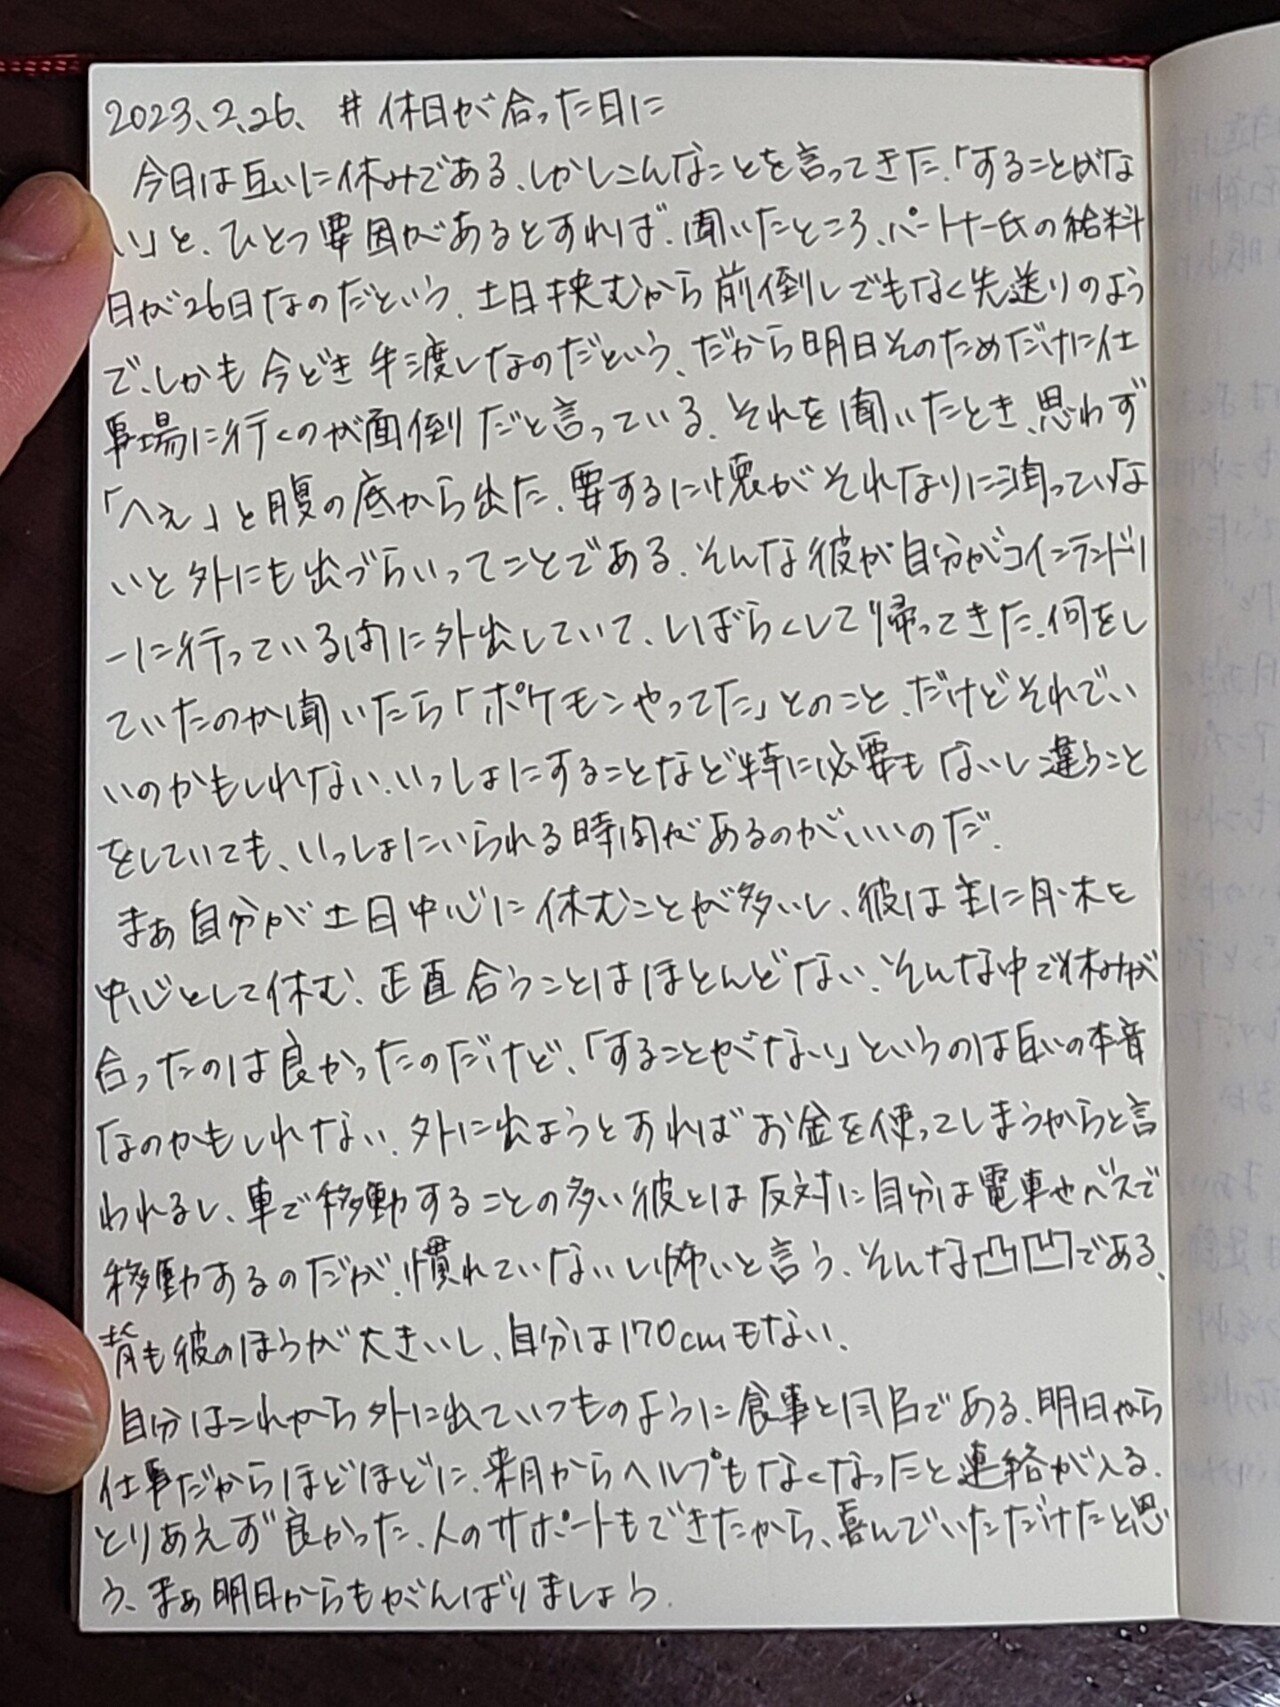 2023.2.26. #休日が合った日に
今日は互いに休みである。しかしこんなことを言ってきた。「することがな
い」と。ひとつ要因があるとすれば、聞いたところ、パートナー氏の給料
日が26日なのだという。土日挟むから前倒しでもなく先送りのよう
で、しかも今どき手渡しなのだという。だから明日そのためだけに仕
事場に行くのが面倒だと言っている。それを聞いたとき、思わず
「へぇ」と腹の底から出た。要するに懐がそれなりに潤っていな
いと外にも出づらいってことである。そんな彼が自分がコインランドリ
ーに行っている間に外出していて、しばらくして帰ってきた。何をし
ていたのか聞いたら「ポケモンやってた」とのこと。だけどそれでい
いのかもしれない。いっしょにすることなど特に必要もないし違うこと
をしていても、いっしょにいられる時間があるのがいいのだ。
まぁ自分が土日中心に休むことが多いし、彼は主に月・木を
中心として休む。正直合うことはほとんどない。そんな中で休みが
合ったのは良かったのだけど、「することがない」というのは互いの本音
なのかもしれない。外に出ようとすればお金を使ってしまうからと言
われるし、車で移動することの多い彼とは反対に自分は電車やバスで
移動するのだが、慣れていないし怖いと言う。そんな凸凹である。
背も彼のほうが大きいし、自分は170cmもない。
自分はこれから外に出ていつものように食事と同名である。明日から
仕事だからほどほどに。来月からヘルプもなくなったと連絡が入る。
とりあえず良かった。人のサポートもできたから、喜んでいただけたと思
う。まぁ明日からもがんばりましょう。